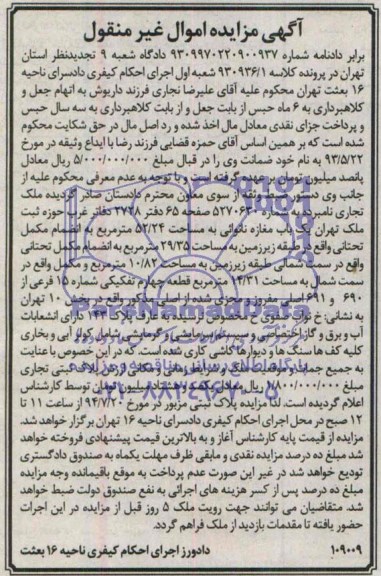 آگهی مزایده اموال غیر منقول
برابر دادنامه شماره ۹۳۰۹۹۷۰۲۲۰۹۰۰۹۳۷ دادگاه شعبه ۹ تجدیدنظر استان
تهران در پرونده کلاسه ۹۳۰۹۳۶/۱ شعبه اول اجرای احکام کیفری دادسرای ناحیه
۱۶ بعثت تهران محکوم علیه آقای علیرضا نجاری فرزند داریوش به اتهام جعل و
کلاهبرداری به ۶ ماه حبس از بابت جعل و از بابت کلاهبرداری به سه سال حبس
و پرداخت جزای نقدی معادل مال اخذ شده و رد اصل مال در حق شکایت محکوم
شده است که بر همین اساس آقای حمزه قضایی فرزند رضا با ایداع وثیقه در مورخ
۹۳/۵/۲۲ به نام خود ضمانت وی را در قبال مبلغ ۵/۰۰۰/۰۰۰/۰۰۰ ریال معادل
پانصد میلیون تومان برعهده گرفته است و با توجه به عدم معرفی محکوم علیه از
جانب وی دستور ضبط وثیقه از سوی معاون محترم دادستان صادر گردیده ملک
تجاری نامبرده به شماره ۵۲۷۰۶۳ صفحه ۶۵ دفتر ۳۷۲۸ دفاتر غرب حوزه ثبت
ملک تهران یک باب مغازه نانوائی به مساحت ۵۲/۲۴ مترمربع به انضمام مکمل
تحتانی واقع در طبقه زیرزمین به مساحت ۲۹/۳۵ مترمربع به انضمام مکمل تحتانی
واقع در سمت شمالی طبقه زیرزمین به مساحت ۱۰/۸۲ مترمربع و مکمل واقع در
سمت شمال به مساحت ۱۴/۳۱ مترمربع قطعه چهارم تفکیکی شماره ۱۵ فرعی از
۶۹۰ و ۶۹۱ اصلی مفروز و مجزی شده از اصلی مذکور واقع در بخش ۱۰ تهران
به نشانی: خ نواب صفوی خ عارف پلاک ۱۴۳ دارای انشعابات
آب و برق و گاز اختصاصی و سیستم سرمایشی و گرمایشی شامل کولر آبی و بخاری
کلیه کف ها سنگ ها و دیوارها کاشی کاری شده است. که در این خصوص با عنایت
به جمیع جهات ارزش پلاک ثبتی تجاری
مبلغ ۱/۸۰۰/۰۰۰/۰۰۰ ریال معادل یکصد و هشتاد میلیون تومان توسط کارشناس
اعلام گردیده است. لذا مزایده پلاک ثبتی مزبور در مورخ ۹۴/۷/۲۰ از ساعت ۱۱ تا
۱۲ صبح در محل اجرای احکام کیفری دادسرای ناحیه ۱۶ تهران برگزار خواهد شد.
مزایده از قیمت پایه کارشناس آغاز و به بالاترین قیمت پیشنهادی فروخته خواهد
شد مبلغ ده درصد مزایده نقدی و مابقی ظرف مهلت یکماه به صندوق دادگستری
تودیع خواهد شد در غیر این صورت عدم پرداخت به موقع باقیمانده وجه مزایده
مبلغ ده درصد پس از کسر هزینه های اجرائی به نفع صندوق دولت ضبط خواهد
شد. متقاضیان می توانند جهت رویت ملک ۵ روز قبل از مزایده در این اجرات
حضور یافته تا مقدمات بازدید از ملک فراهم گردد.
۱۰۹۰۰۹ دادورز اجرای احکام کیفری ناحیه ۱۶ بعثت
۰۲۱-۸۸۳۴۹۶۷۰-۵